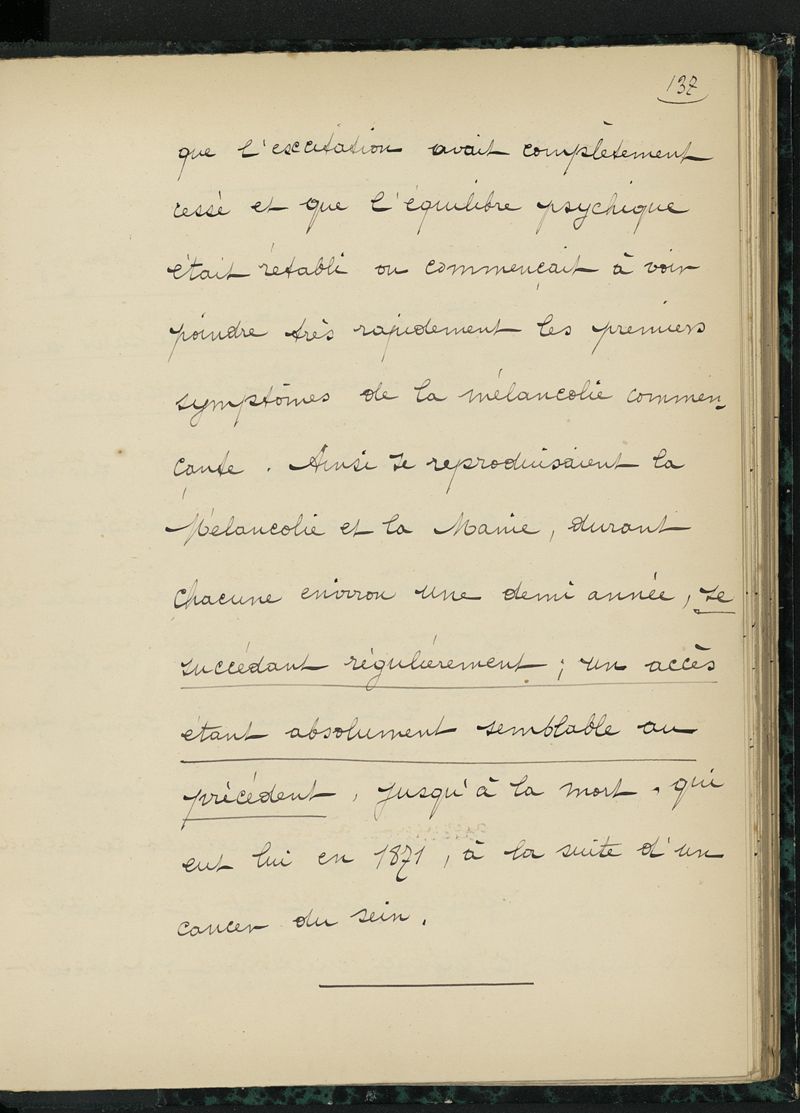 137
que l'excitation avait complètement
cessé et que l'équilibre psychique
était rétabli on commençait à voir
poindre très rapidement les premiers
symptômes de la mélancolie commen-
çante. Ainsi se reproduisaient la
Mélancolie et la Manie, durant
chacune environ une demi année, se
succédant régulièrement; un accès
étant absolument semblable au
précédent, jusqu'à la mort, qui
eut lui en 1871, à la suite d'un
cancer du sein.